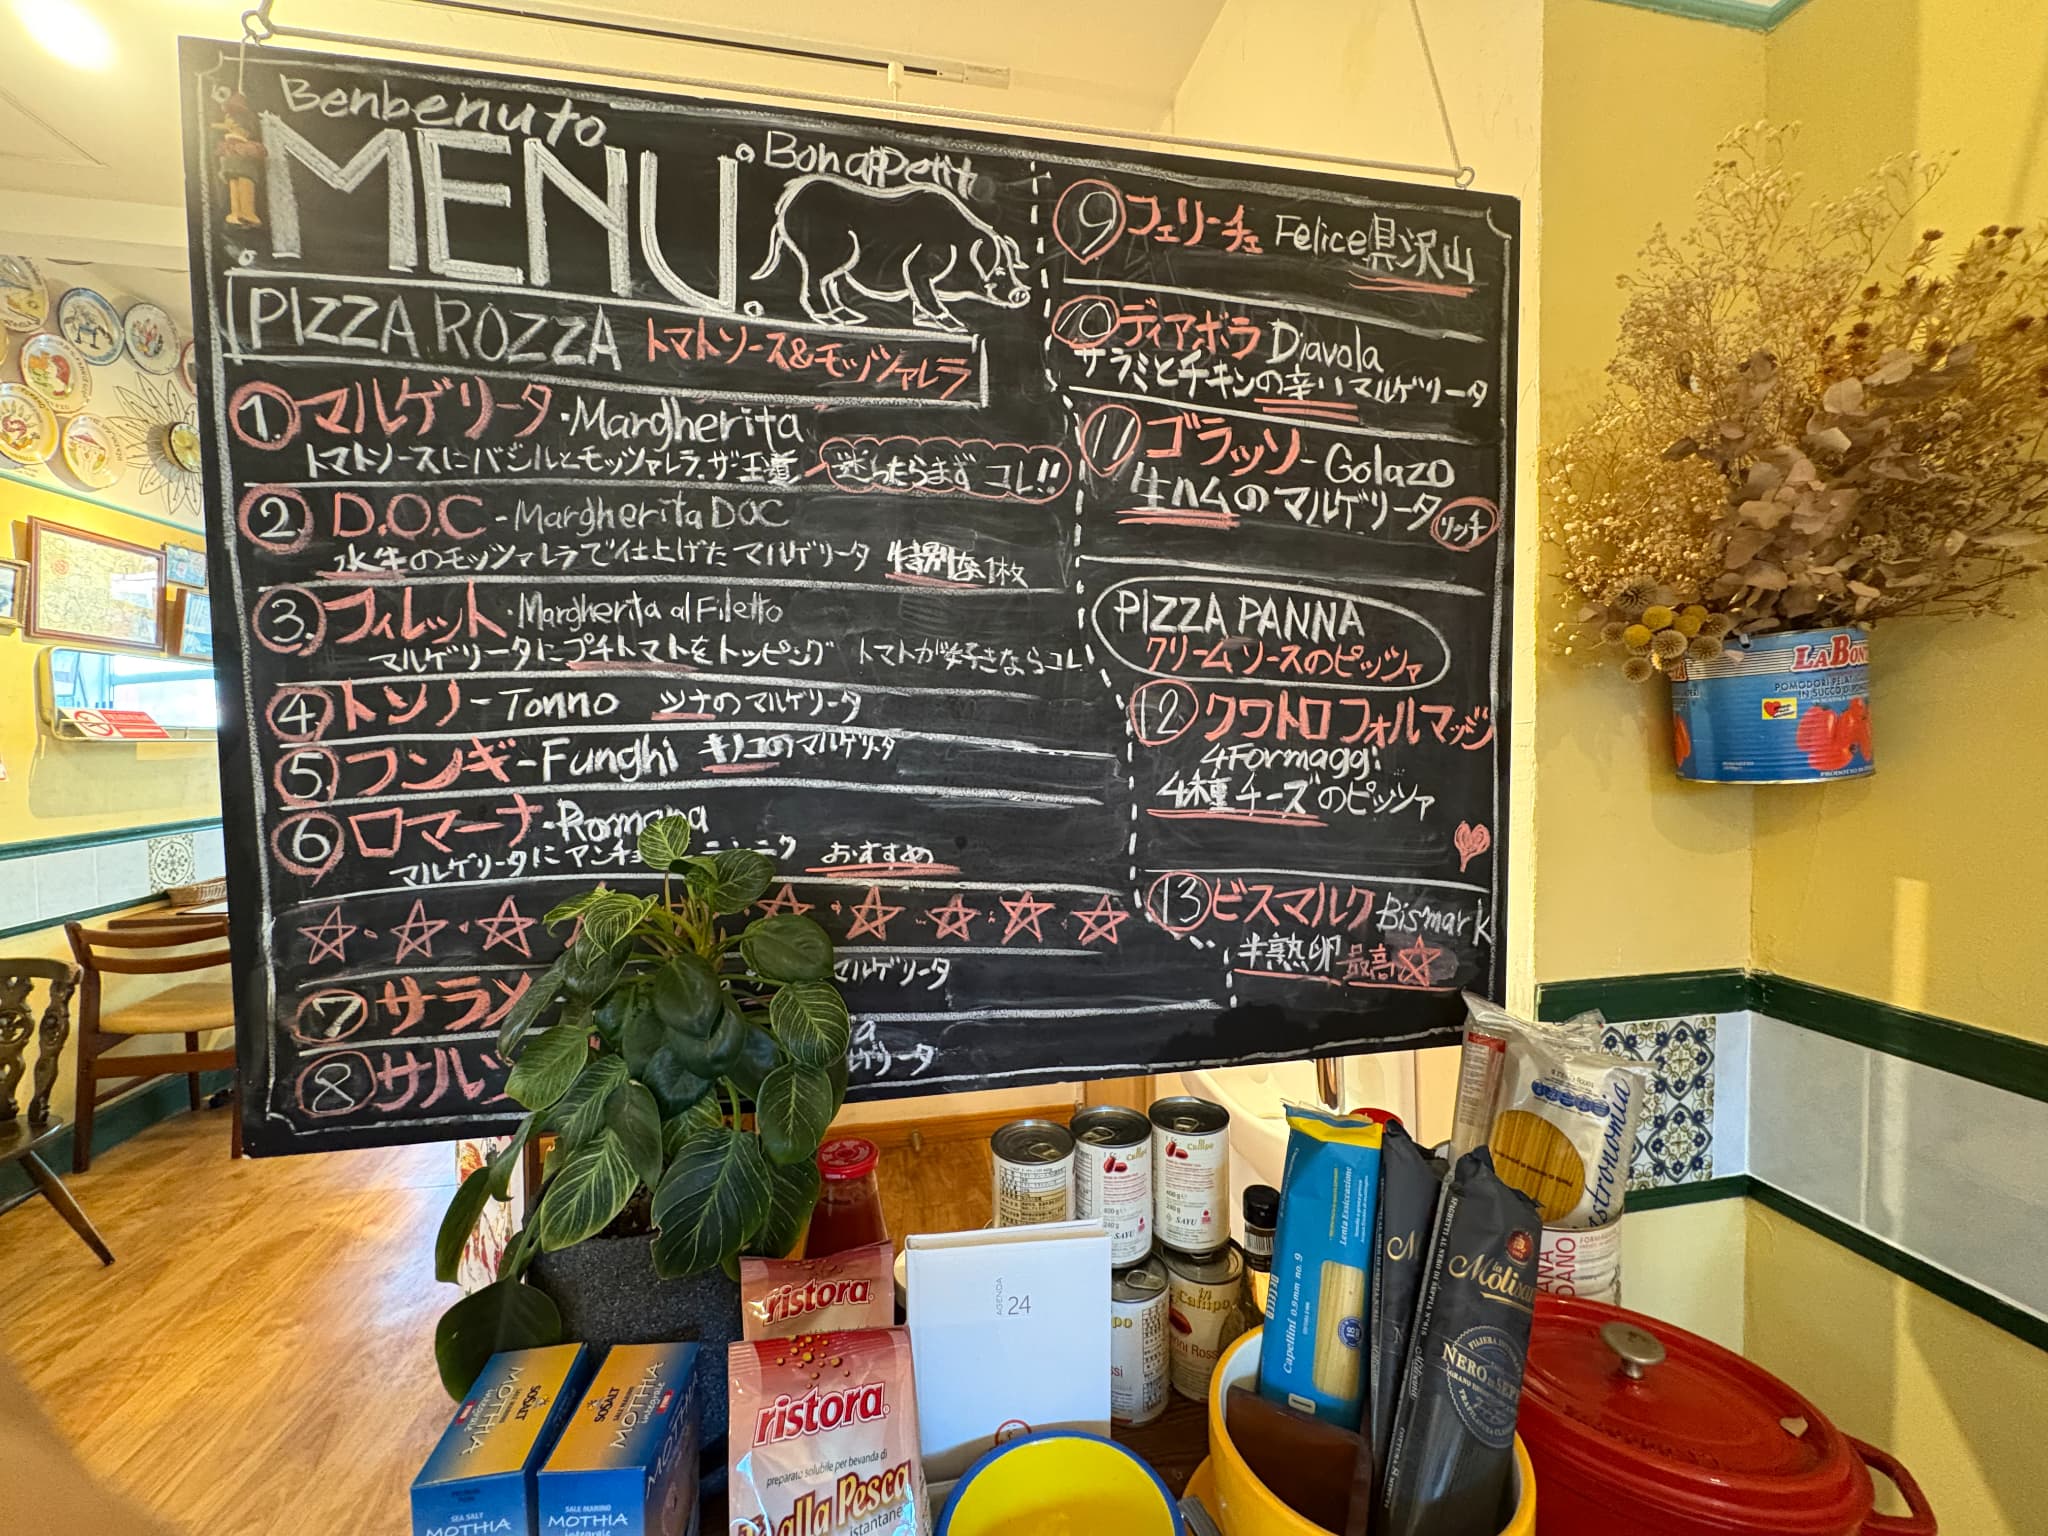 Benbenuto
MENU
Bonappetit
PIZZA ROZZA トマトソース&モッツァレラ
1. マルゲリータ・Margherita
トマトソースにバジルとモッツァレラ.ザ王道 迷ったらまずコレ!!
2. D.O.C - Margherita DOC
水牛のモッツァレラで仕上げたマルゲリータ 特別な1枚
3. フィレット・Margherita al Filetto
マルゲリータにプチトマトをトッピング トマトが好きならコレ
4 トンノ - Tonno ツナのマルゲリータ
5 フンギ - Funghi キノコのマルゲリータ
6 ロマーナ・Romana
マルゲリータにアンチョ ニンニク おすすめ
7 サラメ
マルゲリータ
8 サルシ
ゲリータ
9 フェリーチェ Felice 具沢山
10 ディアボラ Diavola
サラミとチキンの辛いマルゲリータ
11 ゴラッソ - Golazo
生ハムのマルゲリータ リッチ
PIZZA PANNA
クリームソースのピッツァ
12 クワトロフォルマッジ
4Formaggi
4種チーズのピッツァ
13 ビスマルク Bismark
半熟卵 最高
POMODORI PELATI
IN SUCCO DI
ristora
ristora
preparato solubile per bevanda di
alla Pesca
istantane
AGENDA
24
SOSALT
MOTHIA
SEA SALT
MOTHIA
SOSALT
MOTHIA
integrale
SALE MARINO
MOTHIA
integrale
Campo
SAYU
Campo
400 g
240 g
SAYU
in Campo
Capellini 0.9 mm no. 9
Lenta Essiccazione
La Molisana